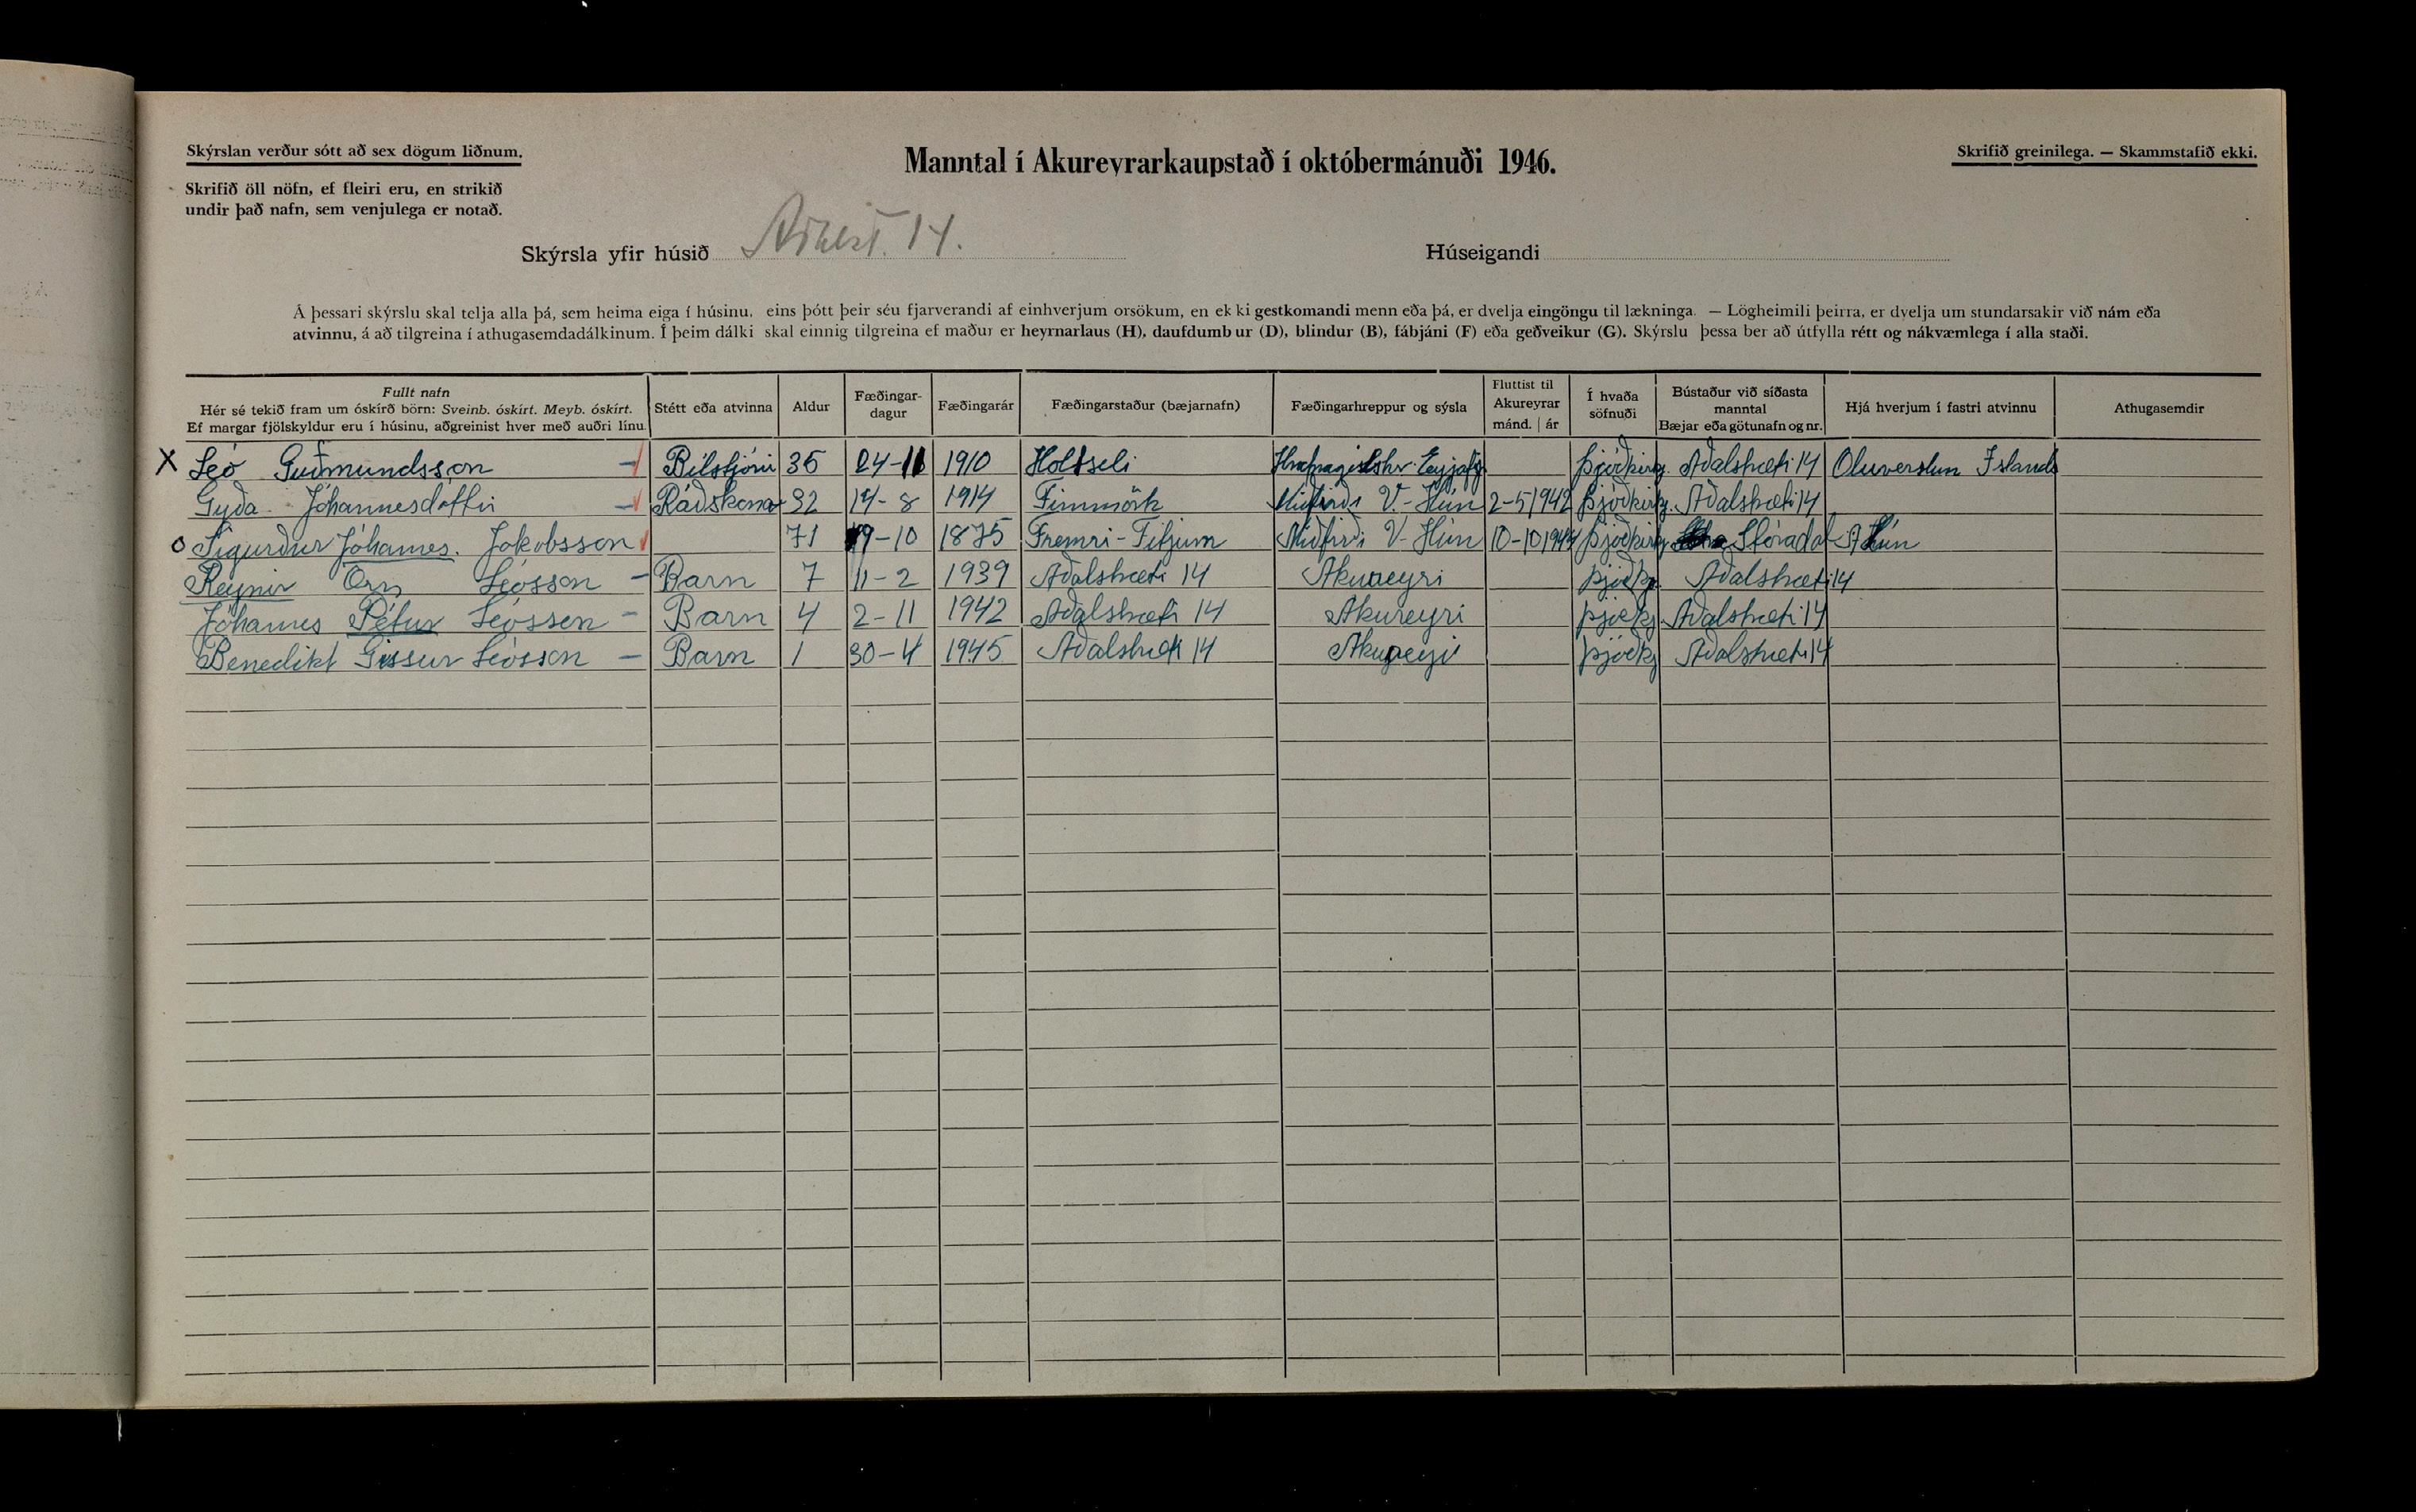 Skýrslan verður sótt að sex dögum liðnum.
Manntal í Akureyrarkaupstað í októbermánuði 1946.
Skrifið greinilega. — Skammstafið ekki.
Skrifið öll nöfn, ef fleiri eru, en strikið
undir það nafn, sem venjulega er notað.
Skýrsla yfir húsið Aðalst. 14. Húseigandi
Á þessari skýrslu skal telja alla þá, sem heima eiga í húsinu, eins þótt þeir séu fjarverandi af einhverjum orsökum, en ekki gestkomandi menn eða þá, er dvelja eingöngu til lækninga. — Lögheimili þeirra, er dvelja um stundarsakir við nám eða
atvinnu, á að tilgreina í athugasemdadálkinum. Í þeim dálki skal einnig tilgreina ef maður er heyrnarlaus (H), daufdumbur (D), blindur (B), fábjáni (F) eða geðveikur (G). Skýrslu þessa ber að útfylla rétt og nákvæmlega í alla staði.
Fullt nafn
Hér sé tekið fram um óskírð börn: Sveinb. óskírt. Meyb. óskírt.
Ef margar fjölskyldur eru í húsinu, aðgreinist hver með auðri línu.
Stétt eða atvinna
Aldur
Fæðingar-
dagur
Fæðingarár
Fæðingarstaður (bæjarnafn)
Fæðingarhreppur og sýsla
Fluttist til
Akureyrar
mánd. | ár
Í hvaða
söfnuði
Bústaður við síðasta
manntal
Bæjar eða götunafn og nr.
Hjá hverjum í fastri atvinnu
Athugasemdir
X Leó Guðmundsson Bílstjóri 35 24-11 1910 Holtseli Hrafnagilshr. Eyjafj. Þjóðkirkj. Aðalstræti 14 Olíuverslun Íslands
Gyða Jóhannesdóttir Ráðskona 32 14-8 1914 Finnmörk Miðfirði V.-Hún 2-5 1942 Þjóðkirkj. Aðalstræti 14
o Sigurður Jóhannes. Jakobsson 71 19-10 1875 Fremri-Fitjum Miðfirði V-Hún 10-10 1944 Þjóðkirkj Stóradal A Hún
Reynir Örn Leósson Barn 7 11-2 1939 Aðalstræti 14 Akureyri Þjóðkj. Aðalstræti 14
Jóhannes Pétur Leósson Barn 4 2-11 1942 Aðalstræti 14 Akureyri Þjóðkj Aðalstræti 14
Benedikt Gissur Leósson Barn 1 30-4 1945 Aðalstræti 14 Akureyri Þjóðkj Aðalstræti 14